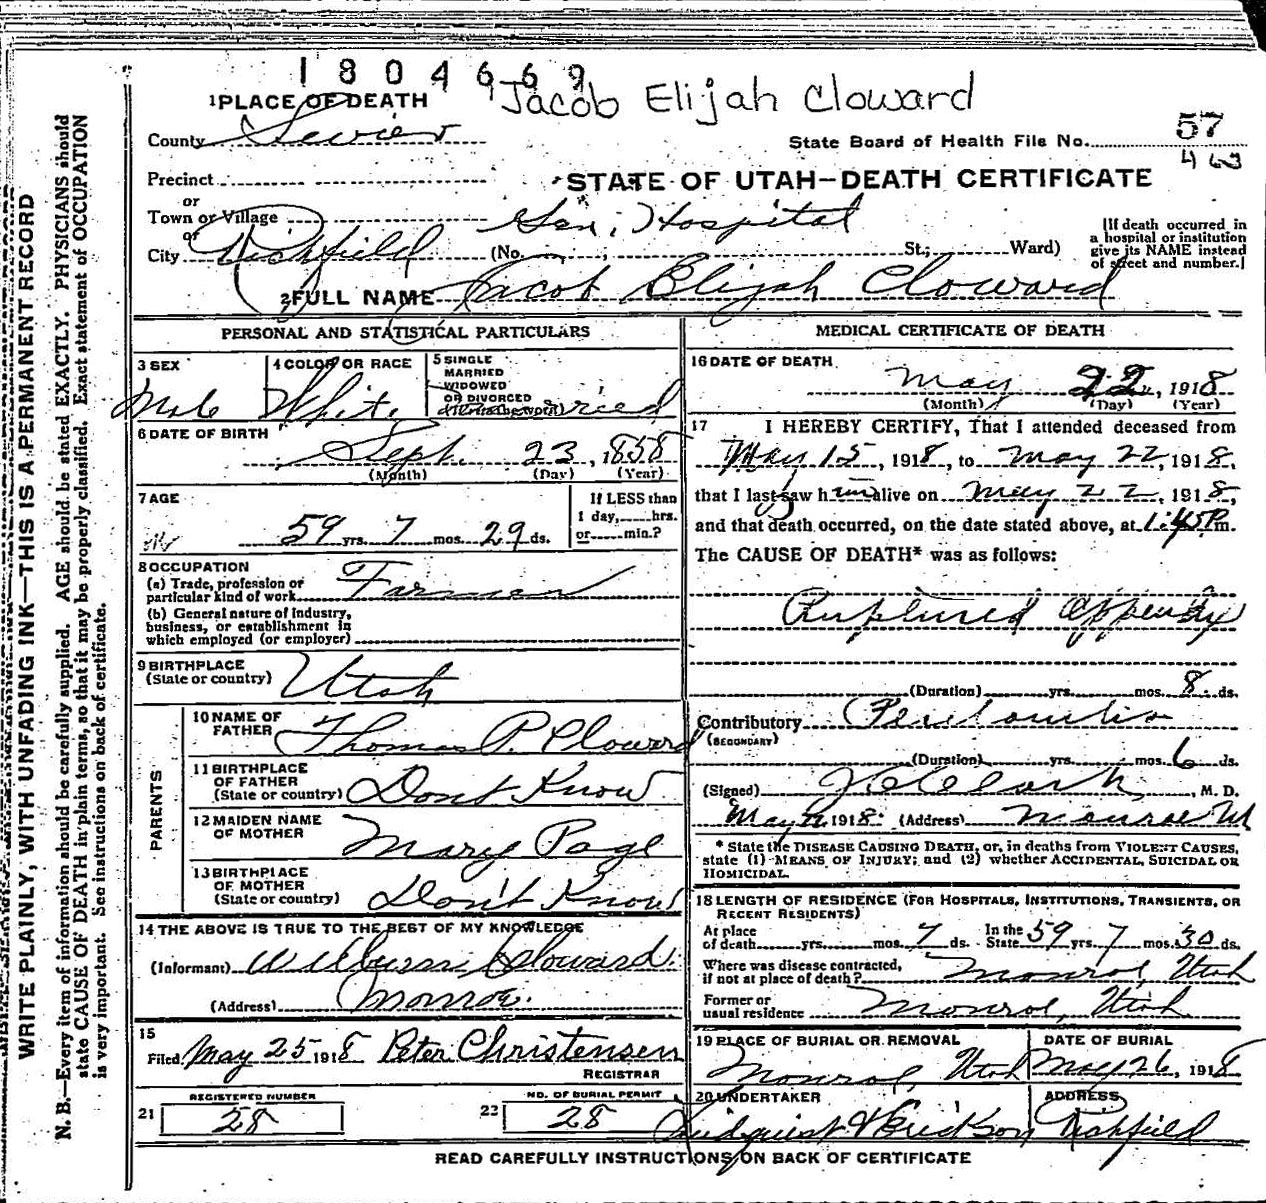 1804669
Jacob Elijah Cloward
1 PLACE OF DEATH
County Sevier
State Board of Health File No. 57
463
Precinct
STATE OF UTAH—DEATH CERTIFICATE
or
Town or Village
Gen. Hospital
or
City Richfield (No. ; St.; Ward)
[If death occurred in a hospital or institution give its NAME instead of street and number.]
2 FULL NAME Jacob Elijah Cloward
PERSONAL AND STATISTICAL PARTICULARS
3 SEX
Male
4 COLOR OR RACE
White
5 SINGLE
MARRIED
WIDOWED
OR DIVORCED
6 DATE OF BIRTH
Sept. 23, 1858
(Month) (Day) (Year)
7 AGE
59 yrs. 7 mos. 29 ds.
If LESS than
1 day, hrs.
or min.?
8 OCCUPATION
(a) Trade, profession or
particular kind of work Farmer
(b) General nature of industry,
business, or establishment in
which employed (or employer)
9 BIRTHPLACE
(State or country) Utah
PARENTS
10 NAME OF
FATHER Thomas P. Cloward
11 BIRTHPLACE
OF FATHER
(State or country) Dont Know
12 MAIDEN NAME
OF MOTHER Mary Page
13 BIRTHPLACE
OF MOTHER
(State or country) Don't Know
14 THE ABOVE IS TRUE TO THE BEST OF MY KNOWLEDGE
(Informant) Cloward
(Address) Monroe.
15
Filed May 25 1918 Peter Christensen
REGISTRAR
21 REGISTERED NUMBER
28
22 NO. OF BURIAL PERMIT
28
MEDICAL CERTIFICATE OF DEATH
16 DATE OF DEATH
May 22, 1918
(Month) (Day) (Year)
17 I HEREBY CERTIFY, That I attended deceased from
May 15, 1918, to May 22, 1918,
that I last saw him alive on May 22, 1918,
and that death occurred, on the date stated above, at 1:45 P.m.
The CAUSE OF DEATH* was as follows:
Ruptured Appendix
(Duration) yrs. mos. 8 ds.
Contributory Peritonitis
(SECONDARY)
(Duration) yrs. mos. 6 ds.
(Signed) M. D.
May 1918. (Address) Monroe Ut
* State the DISEASE CAUSING DEATH, or, in deaths from VIOLENT CAUSES,
state (1) MEANS OF INJURY; and (2) whether ACCIDENTAL, SUICIDAL OR
HOMICIDAL.
18 LENGTH OF RESIDENCE (FOR HOSPITALS, INSTITUTIONS, TRANSIENTS, OR
RECENT RESIDENTS)
At place of death yrs. mos. 7 ds. In the State 59 yrs. 7 mos. 30 ds.
Where was disease contracted,
if not at place of death? Monroe, Utah
Former or
usual residence Monroe, Utah
19 PLACE OF BURIAL OR REMOVAL
Monroe, Utah
DATE OF BURIAL
May 26, 1918
20 UNDERTAKER
Lindquist & Erickson
ADDRESS
Richfield
READ CAREFULLY INSTRUCTIONS ON BACK OF CERTIFICATE
WRITE PLAINLY, WITH UNFADING INK—THIS IS A PERMANENT RECORD
N. B.—Every item of information should be carefully supplied. AGE should be stated EXACTLY. PHYSICIANS should
state CAUSE OF DEATH in plain terms, so that it may be properly classified. Exact statement of OCCUPATION
is very important. See instructions on back of certificate.